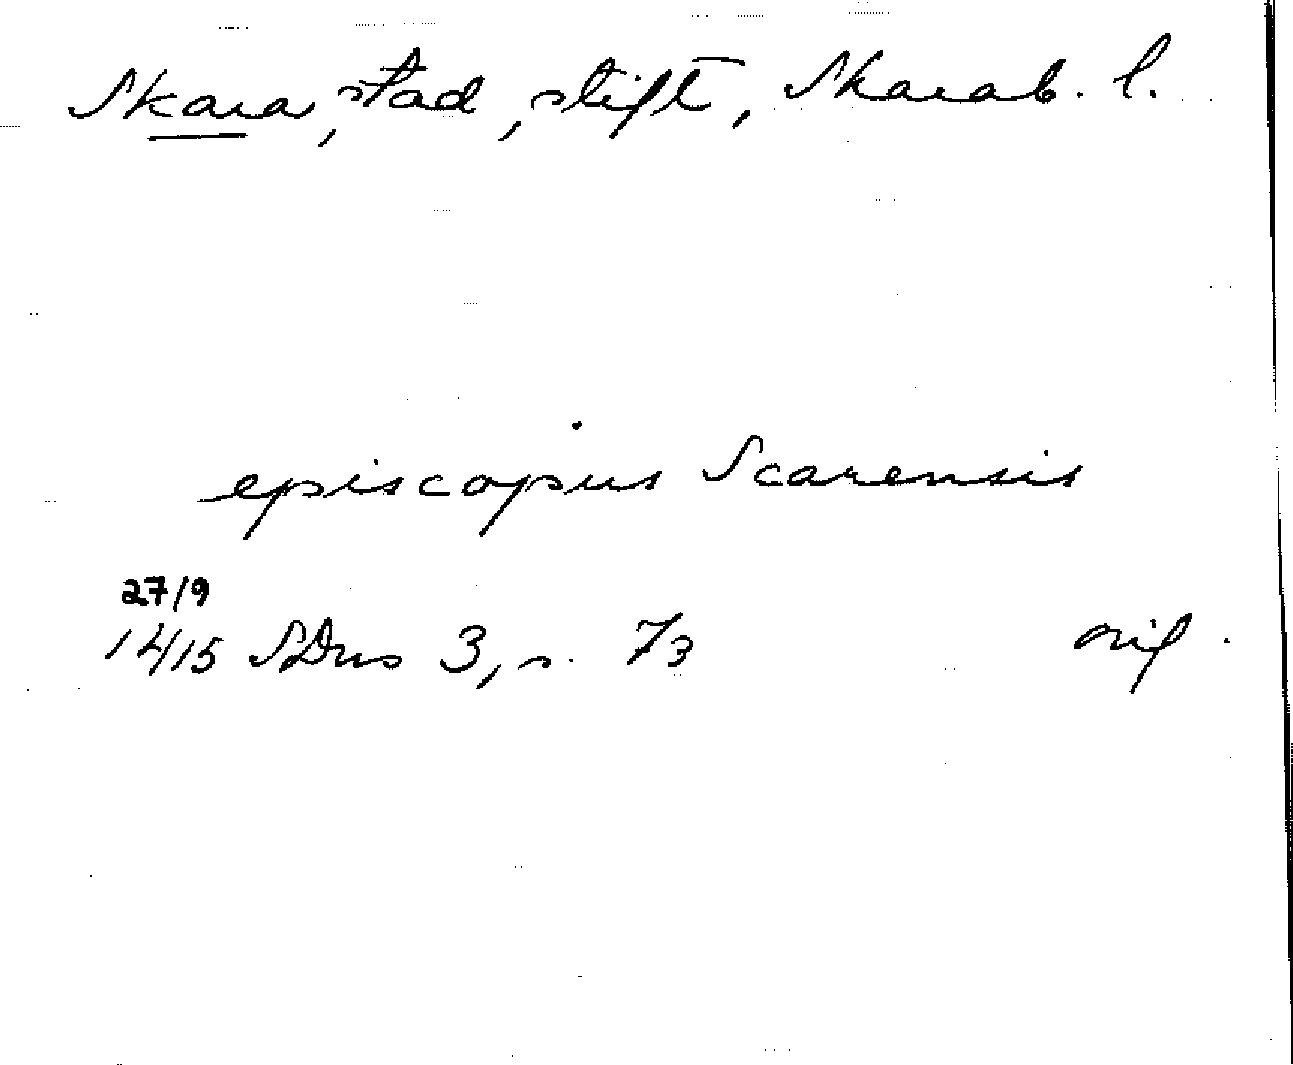 Skara, stad, stift, Skarab. l.
episcopus Scarensis
27/9
1415 SDns 3, s. 73 orig.